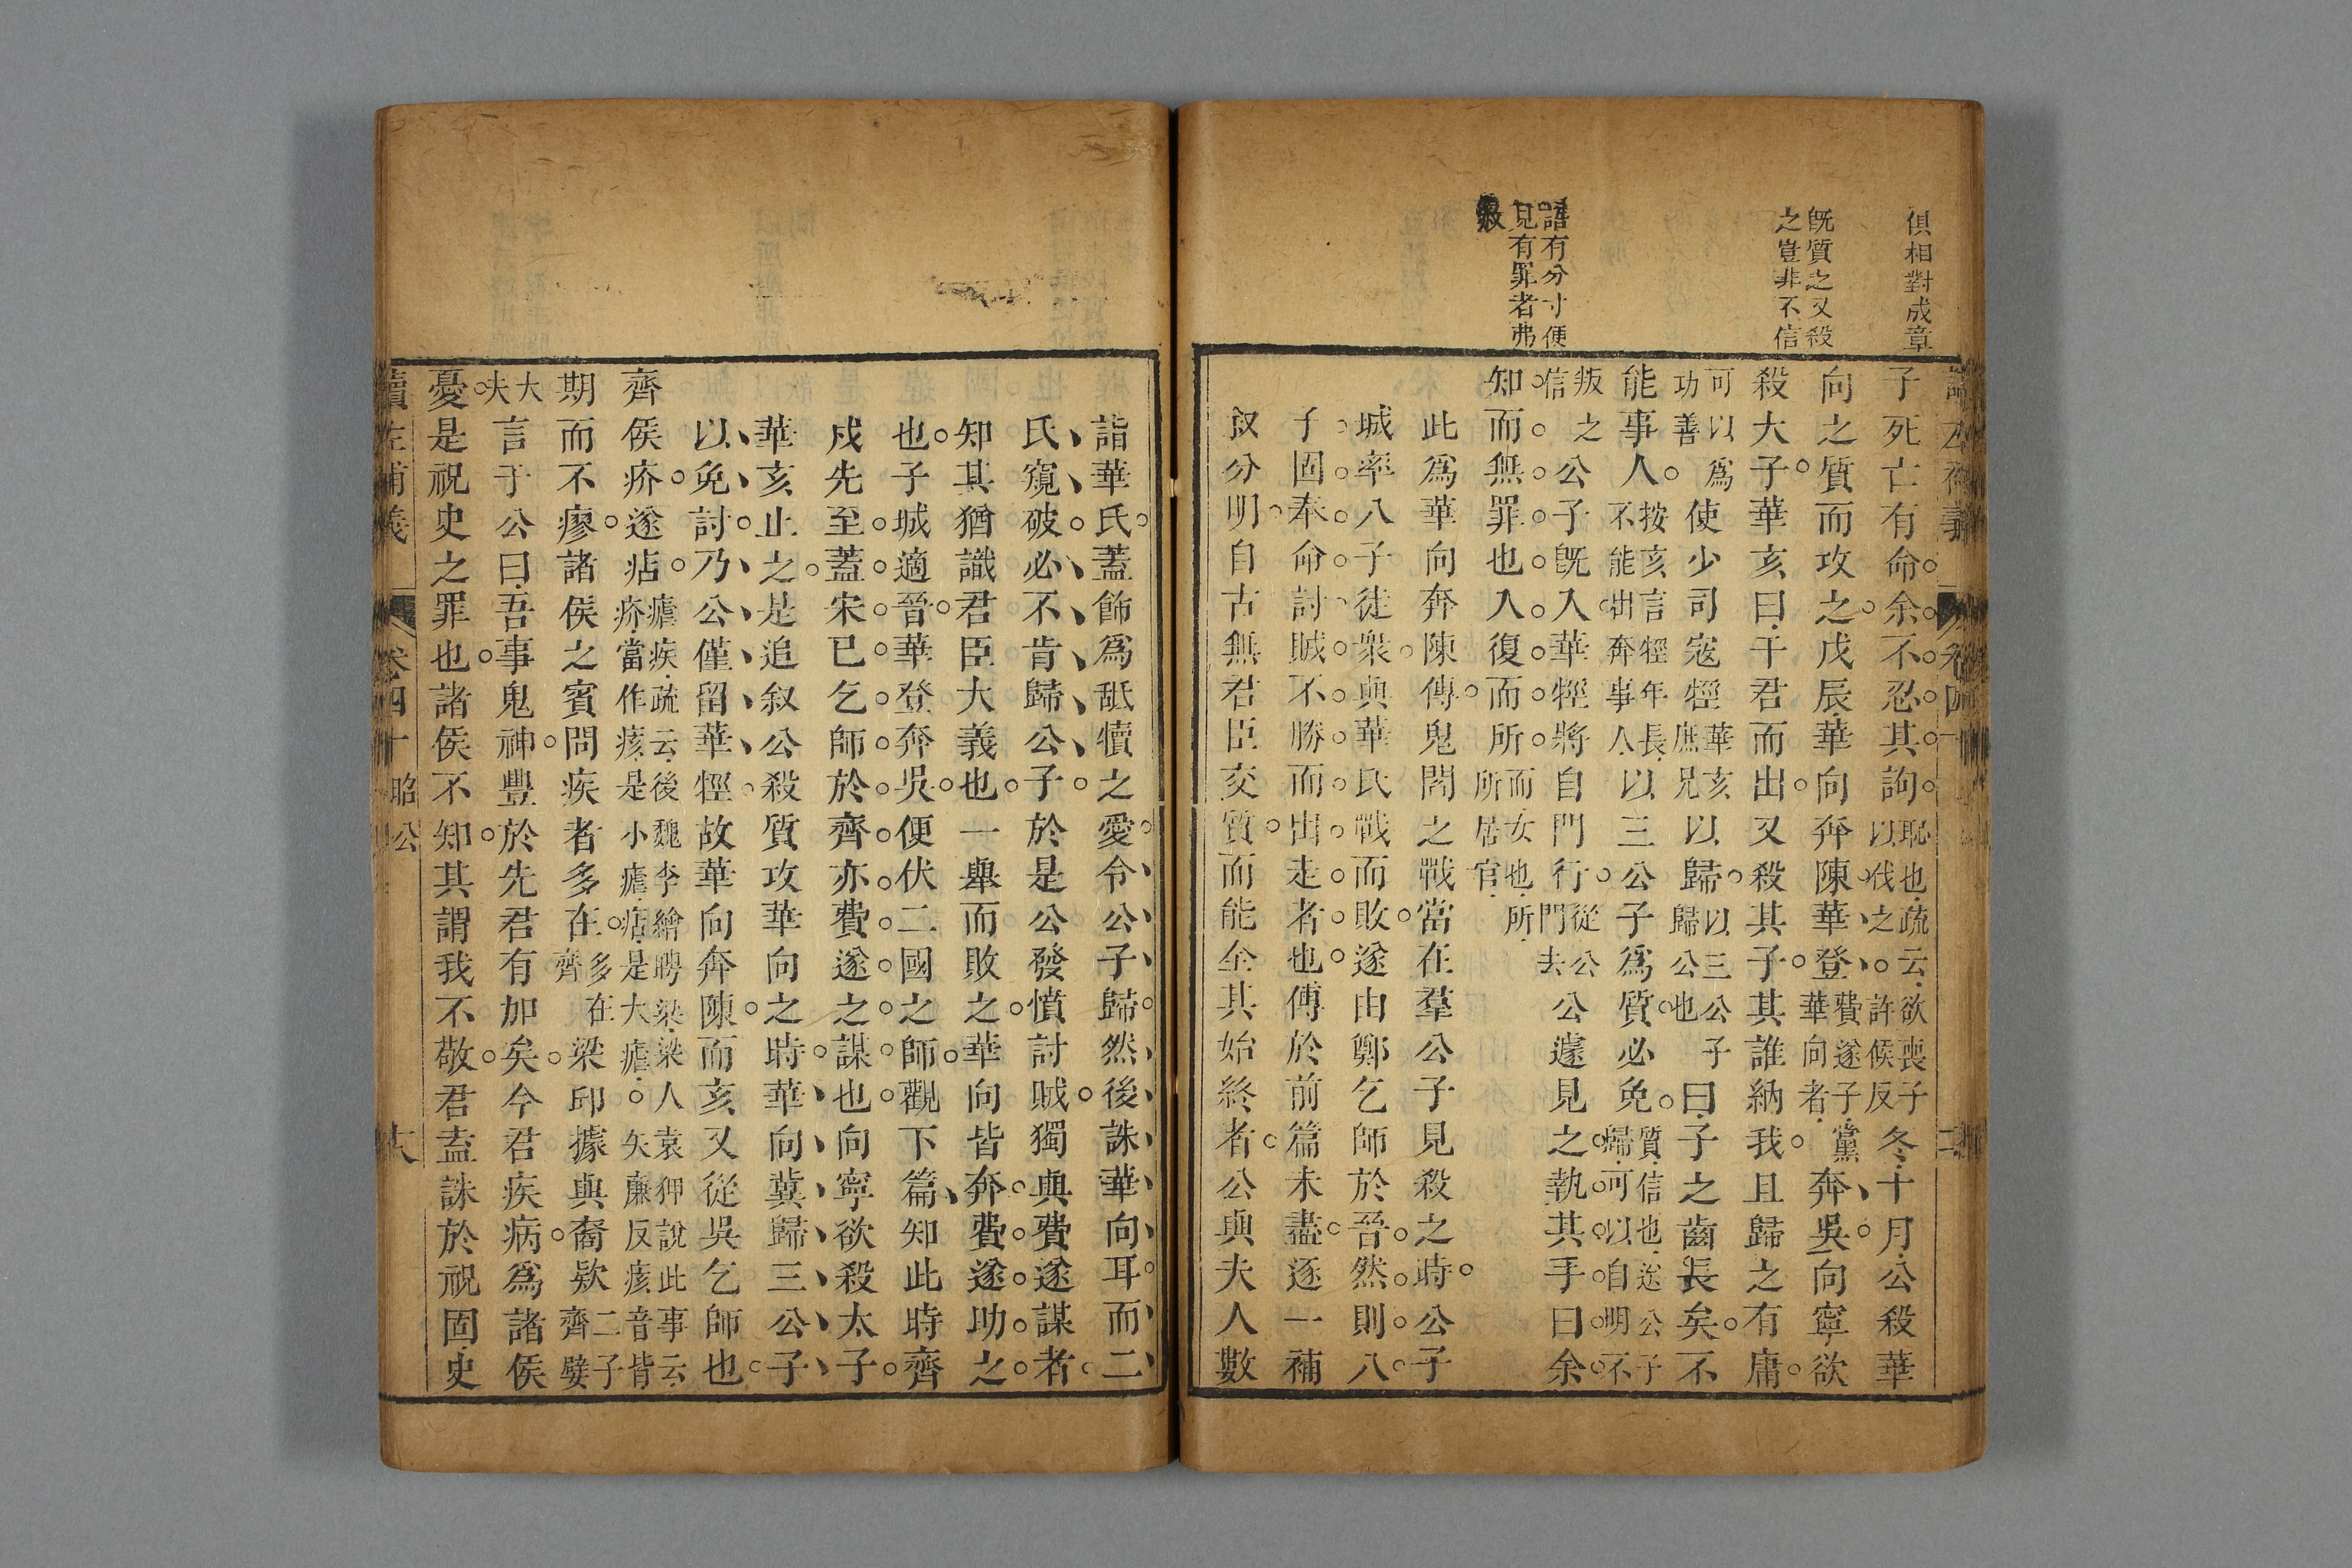 俱相對成章
既質之又殺
之豈非不信
語有分寸便
見有罪者弗
敘
子死亡有命余不忍其訽恥也疏云欲喪子以伐之許候反冬十月公殺華
向之質而攻之戊辰華向奔陳華登費遂子黨華向者奔吳向寧欲
殺大子華亥曰干君而出又殺其子其誰納我且歸之有庸
可以為功善使少司寇牼華亥庶兄以歸以三公子歸公也曰子之齒長矣不
能事人按亥言牼年長不能出奔事人以三公子為質必免質信也送公子歸可以自明不
叛之信公子既入華牼將自門行從公門去公遽見之執其手曰余
知而無罪也入復而所而女也所所居官
此為華向奔陳傳鬼閻之戰當在羣公子見殺之時公子
城率八子徒衆與華氏戰而敗遂由鄭乞師於晉然則八
子固奉命討賊不勝而出走者也傳於前篇未盡逐一補
敘分明自古無君臣交質而能全其始終者公與夫人數
詣華氏蓋飾為舐犢之愛令公子歸然後誅華向耳而二
氏窺破必不肯歸公子於是公發憤討賊獨與費遂謀者
知其猶識君臣大義也一舉而敗之華向皆奔費遂助之
也子城適晉華登奔吳便伏二國之師觀下篇知此時齊
戍先至蓋宋已乞師於齊亦費遂之謀也向寧欲殺太子
華亥止之是追敘公殺質攻華向之時華向冀歸三公子
以免討乃公僅留華牼故華向奔陳而亥又從吳乞師也
齊侯疥遂痁瘧疾疏云後魏李繪聘梁梁人袁狎說此事云疥當作痎是小瘧痁是大瘧。矢廉反痎音皆
期而不瘳諸侯之賓問疾者多在多在齊梁邱據與裔欵二子齊嬖
大夫言于公曰吾事鬼神豐於先君有加矣今君疾病為諸侯
憂是祝史之罪也諸侯不知其謂我不敬君盍誅於祝固史
讀左補義
卷四十
昭公